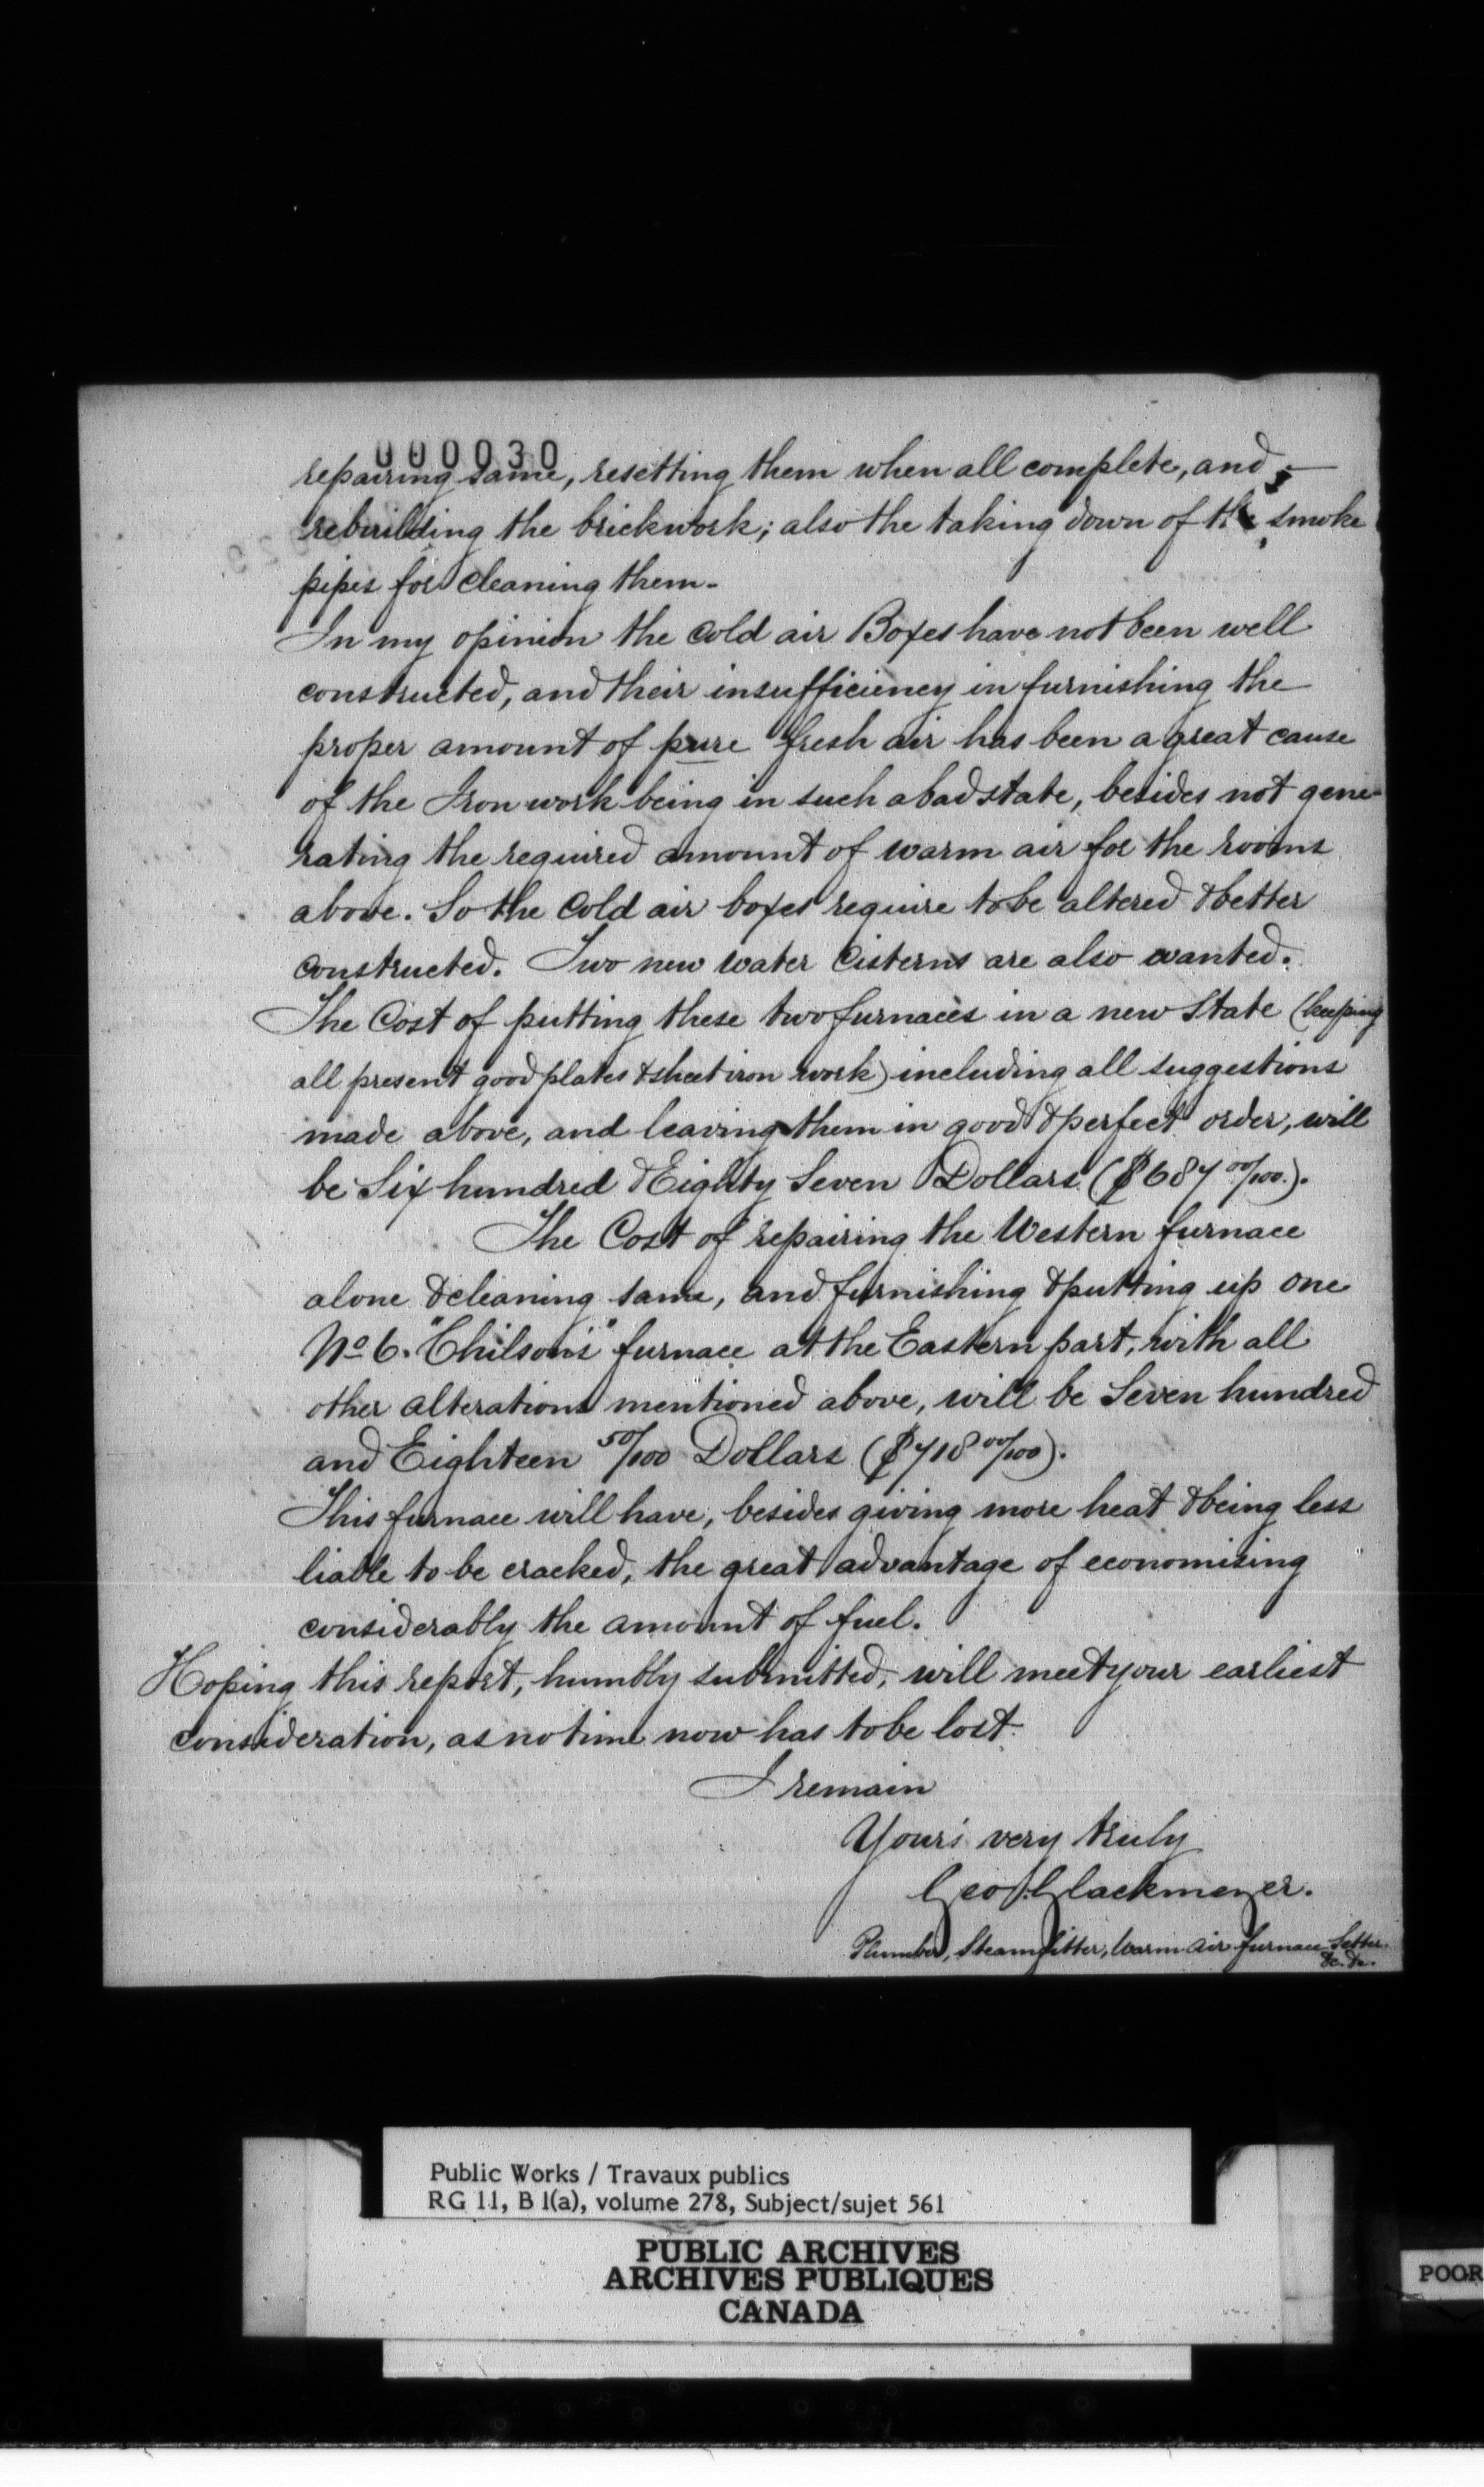 000030
repairing same, resetting them when all complete, and
rebuilding the brickwork; also the taking down of the smoke
pipes for cleaning them.
In my opinion the cold air Boxes have not been well
constructed, and their insufficiency in furnishing the
proper amount of pure fresh air has been a great cause
of the Iron work being in such a bad state, besides not gene-
rating the required amount of warm air for the rooms
above. So the Cold air boxes require to be altered & better
constructed. Two new water Cisterns are also wanted.
The Cost of putting these two furnaces in a new State (keeping
all present good plates & sheet iron work) including all suggestions
made above, and leaving them in good & perfect order, will
be Six hundred & Eighty Seven Dollars ($687 00/100.).
The Cost of repairing the Western furnace
alone & cleaning same, and furnishing & putting up one
No 6. "Chilson's" furnace at the Eastern part, with all
other alterations mentioned above, will be Seven hundred
and Eighteen 50/100 Dollars ($718 00/100).
This furnace will have, besides giving more heat & being less
liable to be cracked, the great advantage of economising
considerably the amount of fuel.
Hoping this report, humbly submitted, will meet your earliest
consideration, as no time now has to be lost.
I remain
Your's very truly
Geo. Glackmeyer.
Plumber, Steamfitter, Warm Air furnace Setter
&c. &c.
Public Works / Travaux publics
RG 11, B 1(a), volume 278, Subject/sujet 561
PUBLIC ARCHIVES
ARCHIVES PUBLIQUES
CANADA
POOR